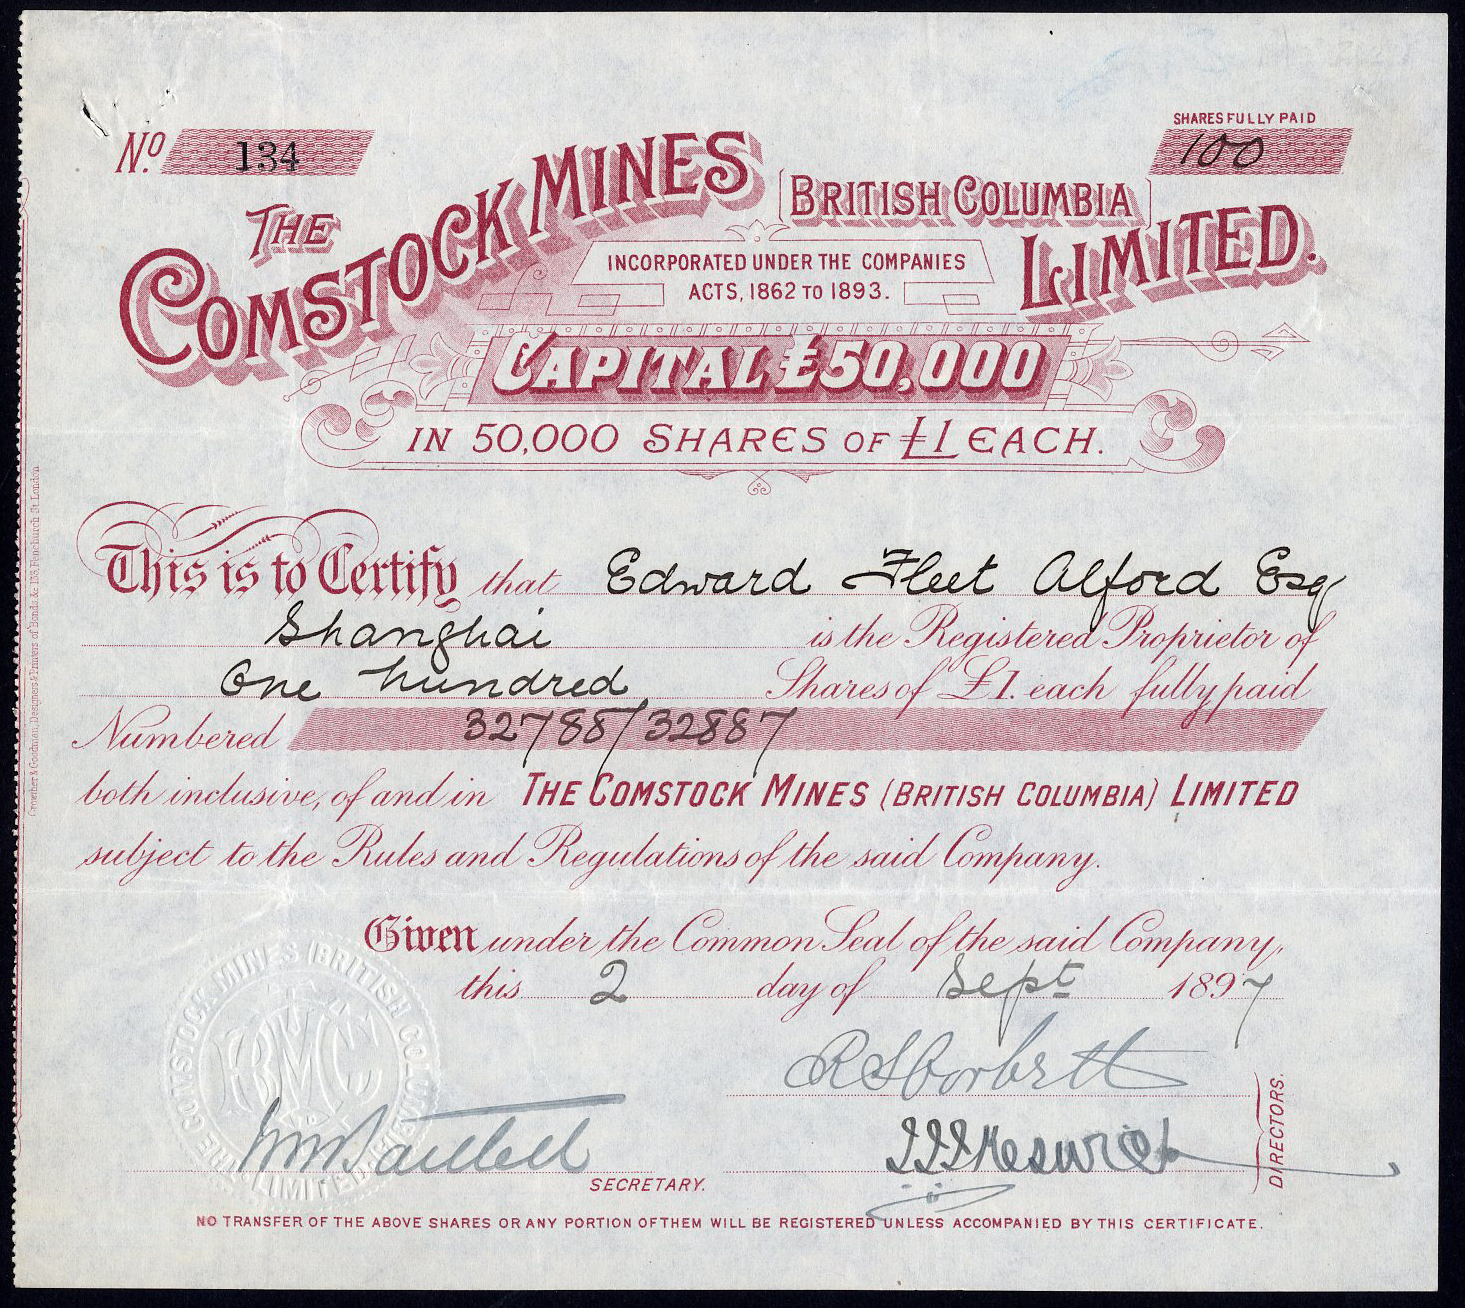 SHARES FULLY PAID
No. 134
100
THE
COMSTOCK MINES
[BRITISH COLUMBIA]
LIMITED.
INCORPORATED UNDER THE COMPANIES
ACTS, 1862 TO 1893.
CAPITAL £50,000
IN 50,000 SHARES OF £1 EACH.
This is to Certify that Edward Fleet Alford Esq
Shanghai is the Registered Proprietor of
One hundred Shares of £1. each fully paid
Numbered 32788/32887
both inclusive, of and in THE COMSTOCK MINES (BRITISH COLUMBIA) LIMITED
subject to the Rules and Regulations of the said Company.
Given under the Common Seal of the said Company,
this 2 day of Sept 1897
THE COMSTOCK MINES (BRITISH COLUMBIA) LIMITED
DIRECTORS.
SECRETARY.
NO TRANSFER OF THE ABOVE SHARES OR ANY PORTION OF THEM WILL BE REGISTERED UNLESS ACCOMPANIED BY THIS CERTIFICATE.
Crowther & Goodman, Designers & Printers of Bonds &c 135, Fenchurch St. London